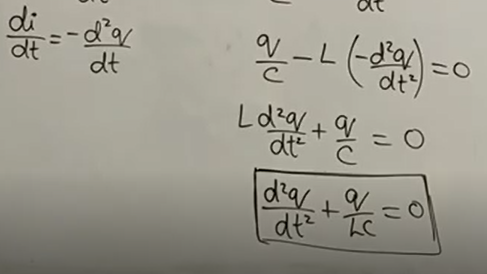 di/dt = -d²q/dt
q/C - L (-d²q/dt²) = 0
L d²q/dt² + q/C = 0
d²q/dt² + q/LC = 0